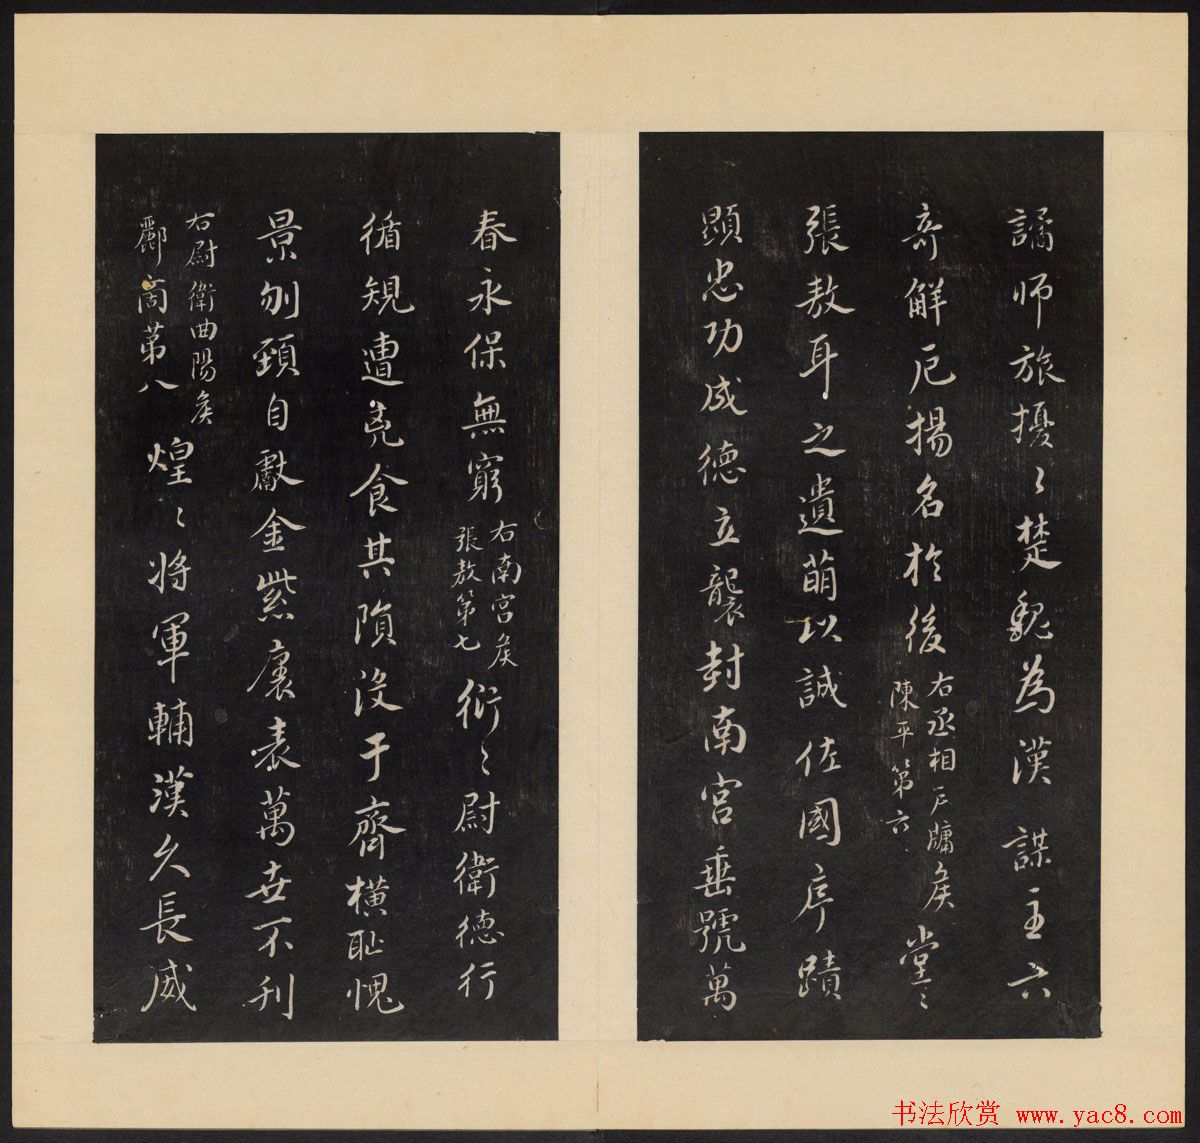 譎師旅擾〻楚魏為漢謀主六
奇解厄揚名於後右丞相戶牖侯陳平第六堂〻
張敖耳之遺萌以誠佐國序蹟
顯忠功成德立襲封南宮垂號萬
春永保無窮右南宮侯張敖第七衎〻尉衛德行
循規遭兂食其隕沒于齊橫恥愧
景刎頸自獻金紫褒表萬世不刋
右尉衛曲陽侯酈商第八煌〻將軍輔漢久長威
书法欣赏 www.yac8.com